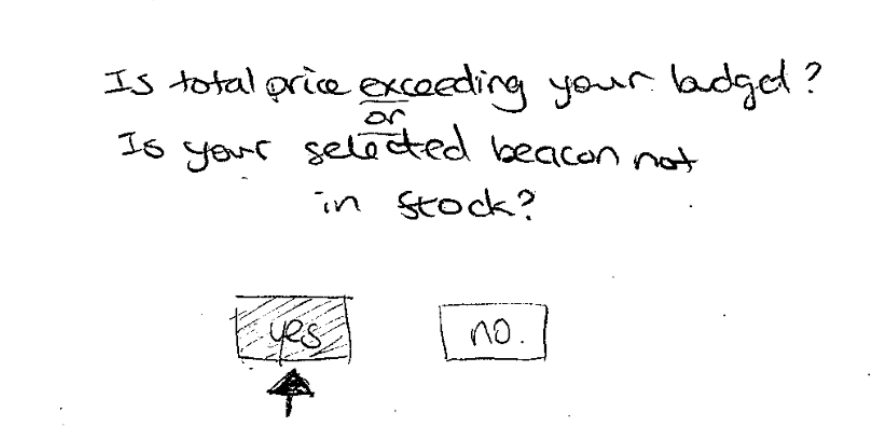 Is total price exceeding your budget?
or
Is your selected beacon not
in stock?
yes
no.